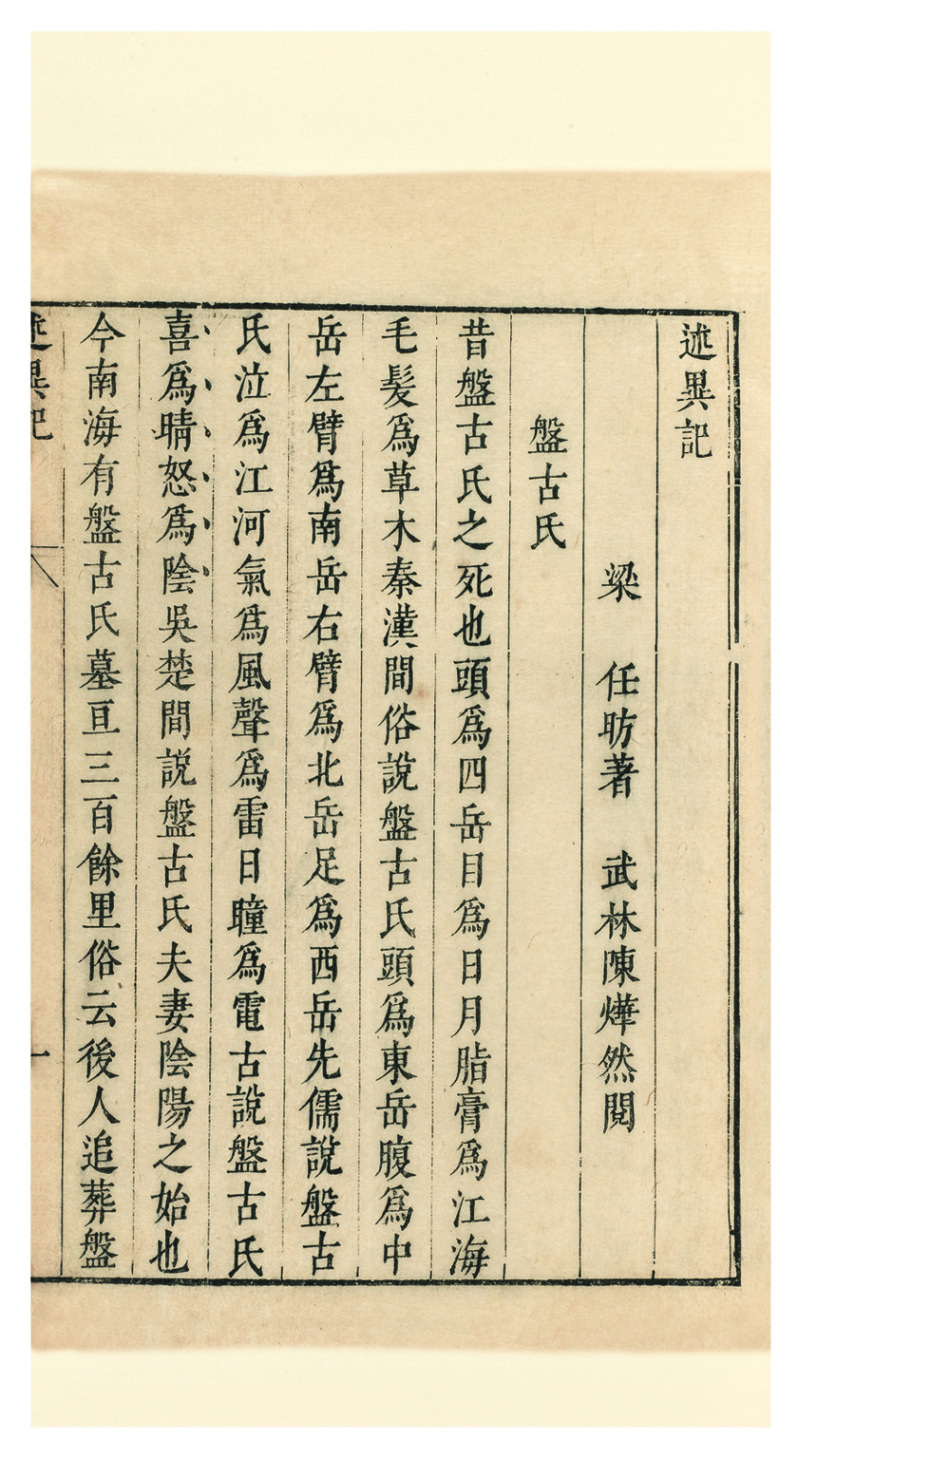 述異記
梁 任昉著 武林陳燁然閱
盤古氏
昔盤古氏之死也頭爲四岳目爲日月脂膏爲江海
毛髮爲草木秦漢間俗說盤古氏頭爲東岳腹爲中
岳左臂爲南岳右臂爲北岳足爲西岳先儒說盤古
氏泣爲江河氣爲風聲爲雷日瞳爲電古說盤古氏
喜爲晴怒爲陰吳楚間說盤古氏夫妻陰陽之始也
今南海有盤古氏墓亘三百餘里俗云後人追葬盤
述異記 一